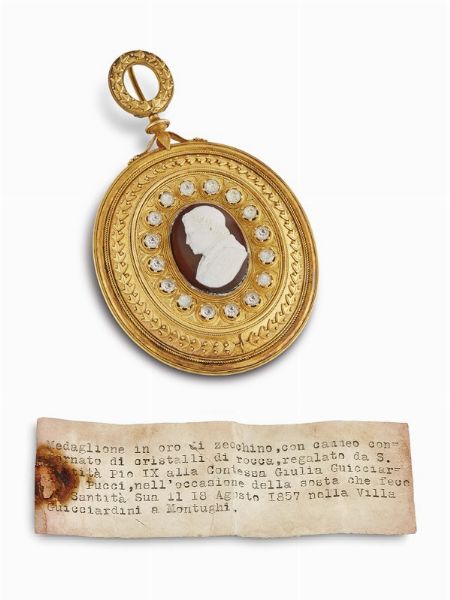 Medaglione in oro di zecchino,con cameo con-
ornato di cristalli di rocca,regalato da S.
Pio IX alla Contessa Giulia Guicciar-
Pucci,nell'occasione della sosta che fece
Santità Sua il 18 Agosto 1857 nella Villa
Guicciardini a Montughi.